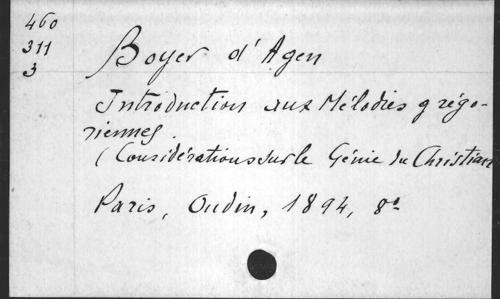 460
311
3
Boyer d'Agen
Introduction aux Mélodies grégo-
riennes.
(Considérations sur le Génie du Christian
Paris, Oudin, 1894, 8º